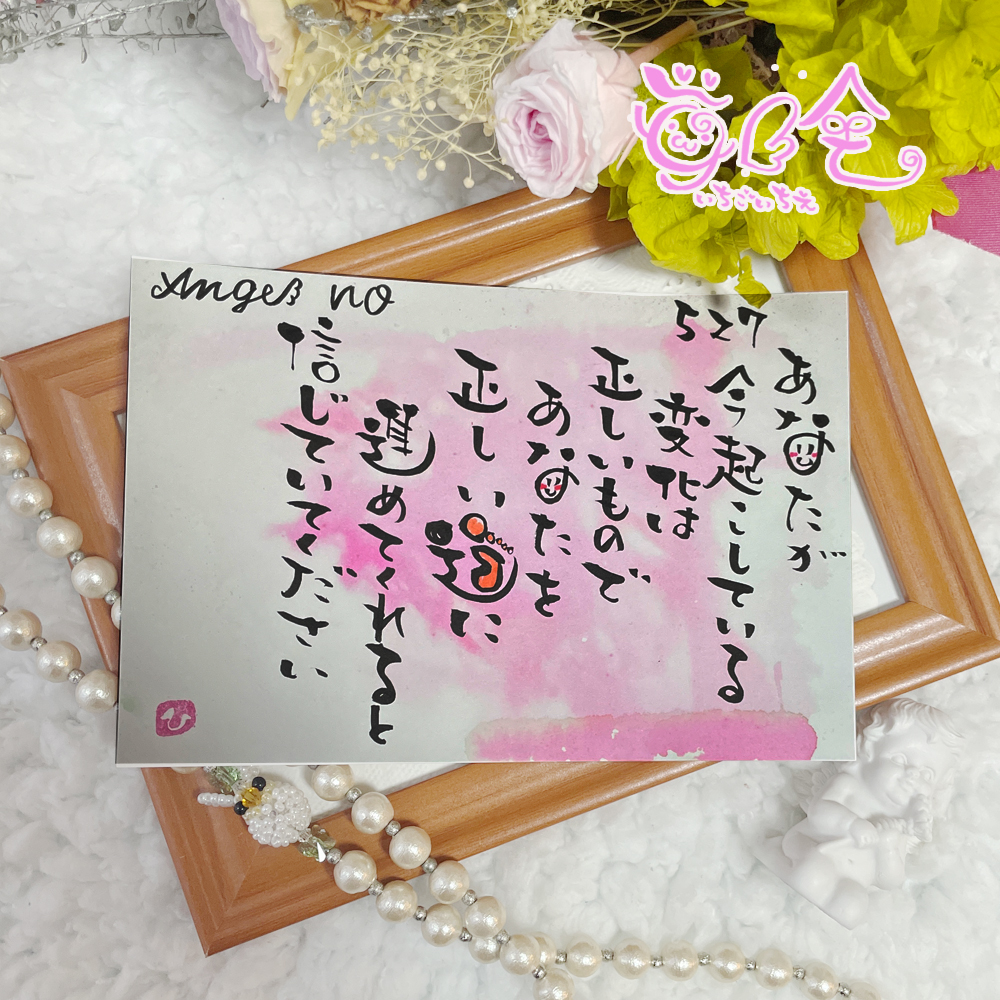 Angel no
527
あなたが
今起こしている
変化は
正しいもので
あなたを
正しい道に
進めてくれると
信じていてください
いちごいちえ